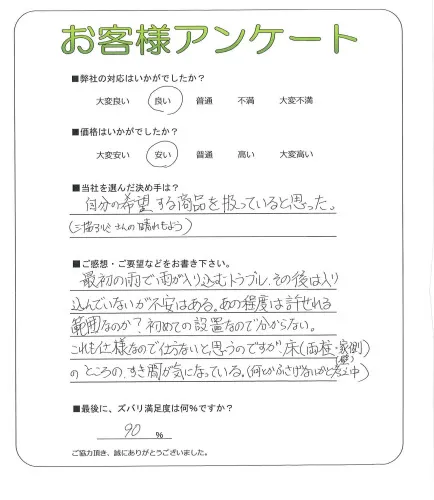 お客様アンケート
■弊社の対応はいかがでしたか？
大変良い 良い 普通 不満 大変不満
■価格はいかがでしたか？
大変安い 安い 普通 高い 大変高い
■当社を選んだ決め手は？
自分の希望する商品を扱っていると思った。
(三協アルミさんの晴れもよう)
■ご感想・ご要望などをお書き下さい。
最初の雨で雨が入り込むトラブル、その後は入り
込んでいないが不安はある。あの程度は許せれる
範囲なのか？初めての設置なので分からない。
これも仕様なので仕方ないと思うのですが、床(両柱・家側)
(壁)
のところの、すき間が気になっている。(何とかふさげないかと思考中)
■最後に、ズバリ満足度は何％ですか？
90 ％
ご協力頂き、誠にありがとうございました。